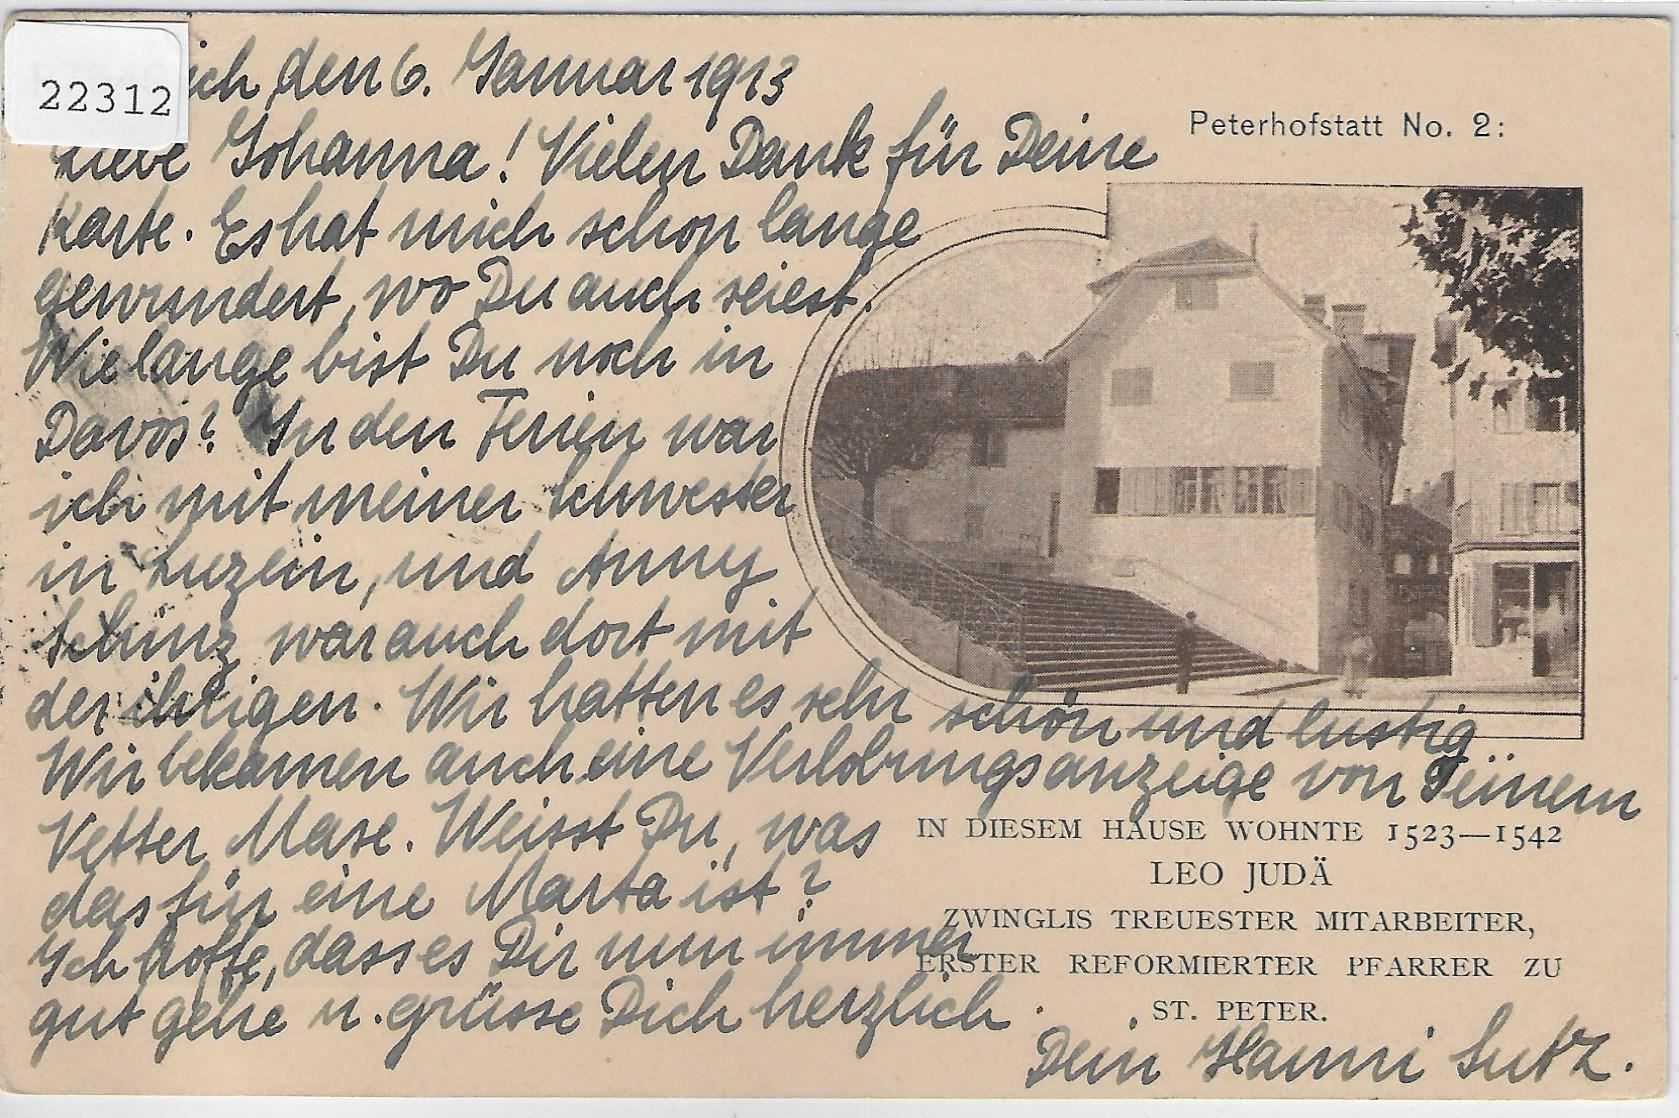 22312
ich, den 6. Januar 1913
Liebe Johanna! Vielen Dank für Deine
Karte. Es hat mich schon lange
gewundert, wo Du auch seiest.
Wie lange bist Du noch in
Davos? In den Ferien war
ich mit meiner Schwester
in Luzein, und Anny
Schinz war auch dort mit
der ihrigen. Wir hatten es sehr schön und lustig
Wir bekamen auch eine Verlobungsanzeige von Deinem
Vetter Mase. Weisst Du, was
das für eine Marta ist?
Ich hoffe, dass es Dir nun immer
gut gehe u. grüsse Dich herzlich.
Dein Hanni Lutz.
Peterhofstatt No. 2:
IN DIESEM HAUSE WOHNTE 1523—1542
LEO JUDÄ
ZWINGLIS TREUESTER MITARBEITER,
ERSTER REFORMIERTER PFARRER ZU
ST. PETER.